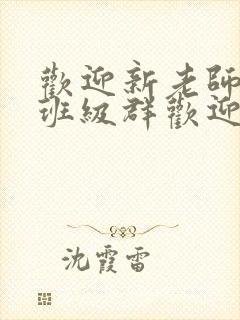 歡迎新老師
班級群歡迎
沈霞雷